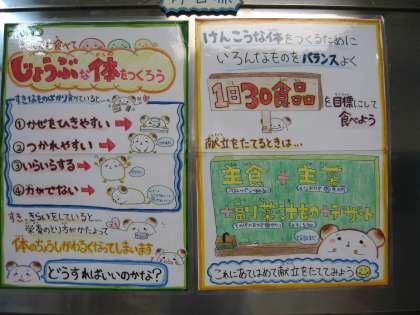 食べて
じょうぶな体をつくろう
すきなものばかり食べていると…
①かぜをひきやすい →
②つかれやすい →
③いらいらする →
④力がでない →
すき、きらいをしていると…
栄養のとり方がかたよって
体のちょうしがわるくなってしまいます
どうすればいいのかな?
けんこうな体をつくるために
いろんなものをバランスよく
1日30食品
を目標にして
食べよう
献立をたてるときは…
主食+主菜
+副菜+汁もの+デザート
これにあてはめて献立をたててみよう